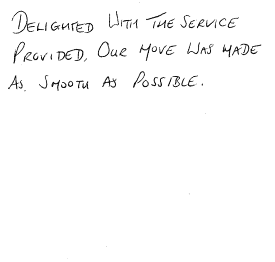 DELIGHTED WITH THE SERVICE
PROVIDED, OUR MOVE WAS MADE
AS SMOOTH AS POSSIBLE.